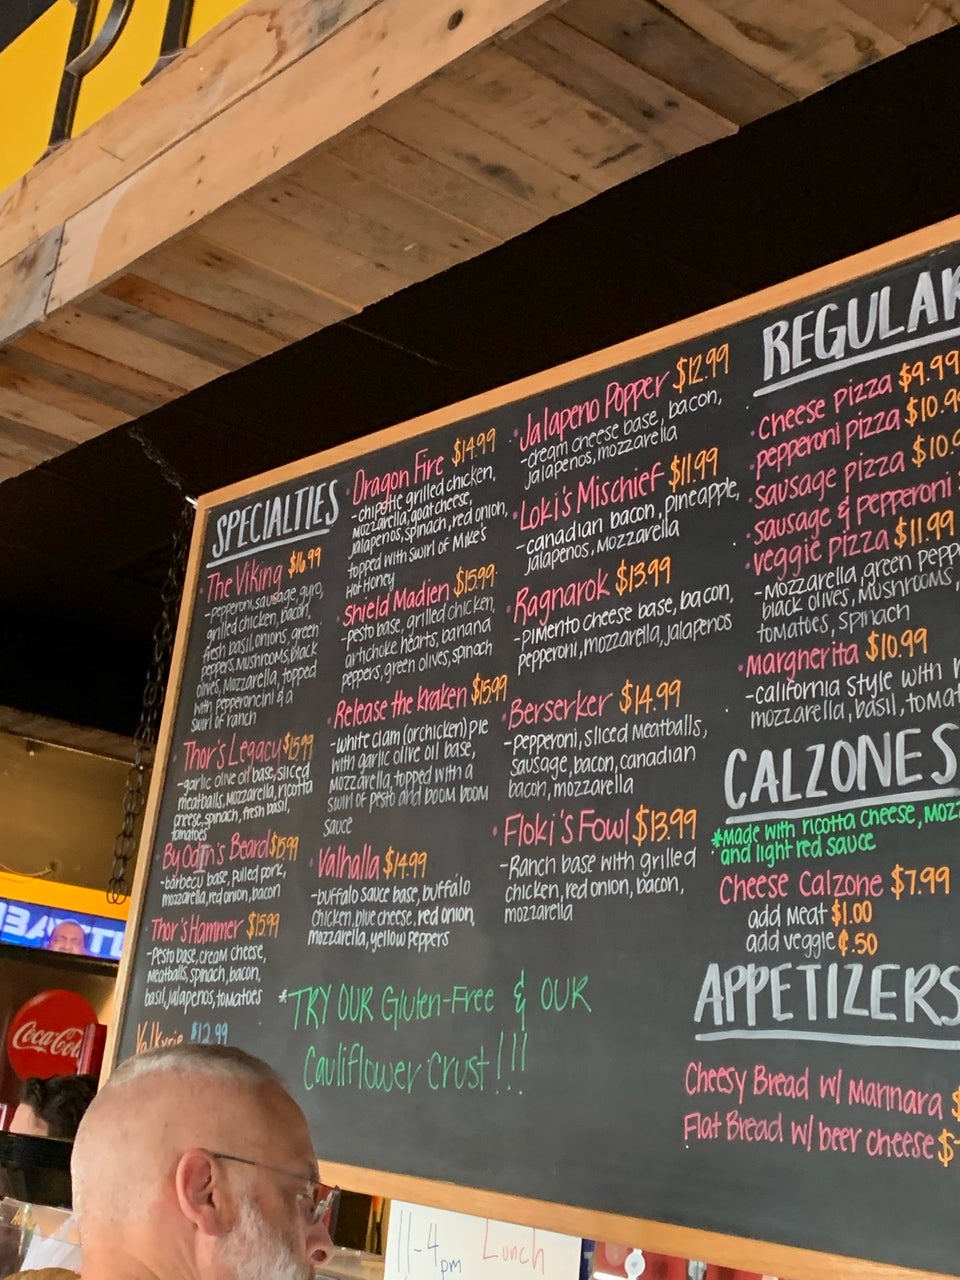 SPECIALTIES
The Viking $16.99
-pepperoni, sausage, gyro,
grilled chicken, bacon,
fresh basil, onions, green
peppers, mushrooms, black
olives, mozzarella, topped
with pepperoncini & a
swirl of ranch
Thor's Legacy $15.99
-garlic olive oil base, sliced
meatballs, mozzarella, ricotta
cheese, spinach, fresh basil,
tomatoes
By Odin's Beard $15.99
-barbecu base, pulled pork,
mozzarella, red onion, bacon
Thor's Hammer $15.99
-Pesto base, cream cheese,
meatballs, spinach, bacon,
basil, jalapenos, tomatoes
Valkyrie $12.99
Dragon Fire $14.99
-chipotle grilled chicken,
mozzarella, goat cheese,
jalapenos, spinach, red onion,
topped with swirl of Mike's
Hot Honey
Shield Madien $15.99
-pesto base, grilled chicken,
artichoke hearts, banana
peppers, green olives, spinach
Release the Kraken $15.99
-white clam (or chicken) pie
with garlic olive oil base,
mozzarella, topped with a
swirl of pesto and boom boom
sauce
Valhalla $14.99
-buffalo sauce base, buffalo
chicken, blue cheese, red onion,
mozzarella, yellow peppers
Jalapeno Popper $12.99
-cream cheese base, bacon,
jalapenos, mozzarella
Loki's Mischief $11.99
-canadian bacon, pineapple,
jalapenos, mozzarella
Ragnarok $13.99
-Pimento cheese base, bacon,
pepperoni, mozzarella, jalapenos
Berserker $14.99
-Pepperoni, sliced meatballs,
sausage, bacon, canadian
bacon, mozzarella
Floki's Fowl $13.99
-Ranch base with grilled
chicken, red onion, bacon,
mozzarella
*TRY OUR Gluten-Free & OUR
Cauliflower Crust!!!
REGULAR
cheese pizza $9.99
pepperoni pizza $10.9
sausage pizza $10.
sausage & pepperoni
veggie pizza $11.99
-Mozzarella, green pepp
black olives, mushrooms,
tomatoes, spinach
Margherita $10.99
-california style with
mozzarella, basil, tomat
CALZONES
*Made with ricotta cheese, Mozz
and light red sauce
Cheese Calzone $7.99
add meat $1.00
add veggie ¢.50
APPETIZERS
Cheesy Bread w/ Marinara $
Flat Bread w/ beer cheese $
Coca-Cola
11-4pm Lunch